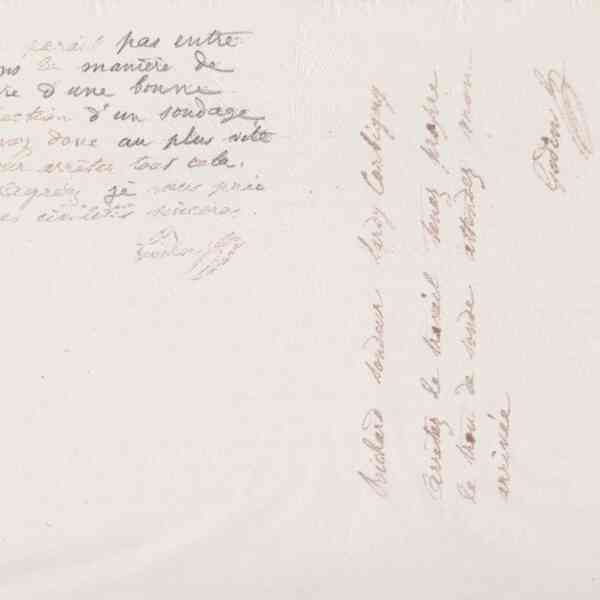 parait pas entre
la manière de
d'une bonne
d'un sondage
donc au plus vite
arrêter tout cela.
agréez je vous prie
civilités sincères.
Godin
Richard sondeur Leroy Corbigny
arrêtez le travail tenez propre
le trou de sonde attendez mon
arrivée
Godin